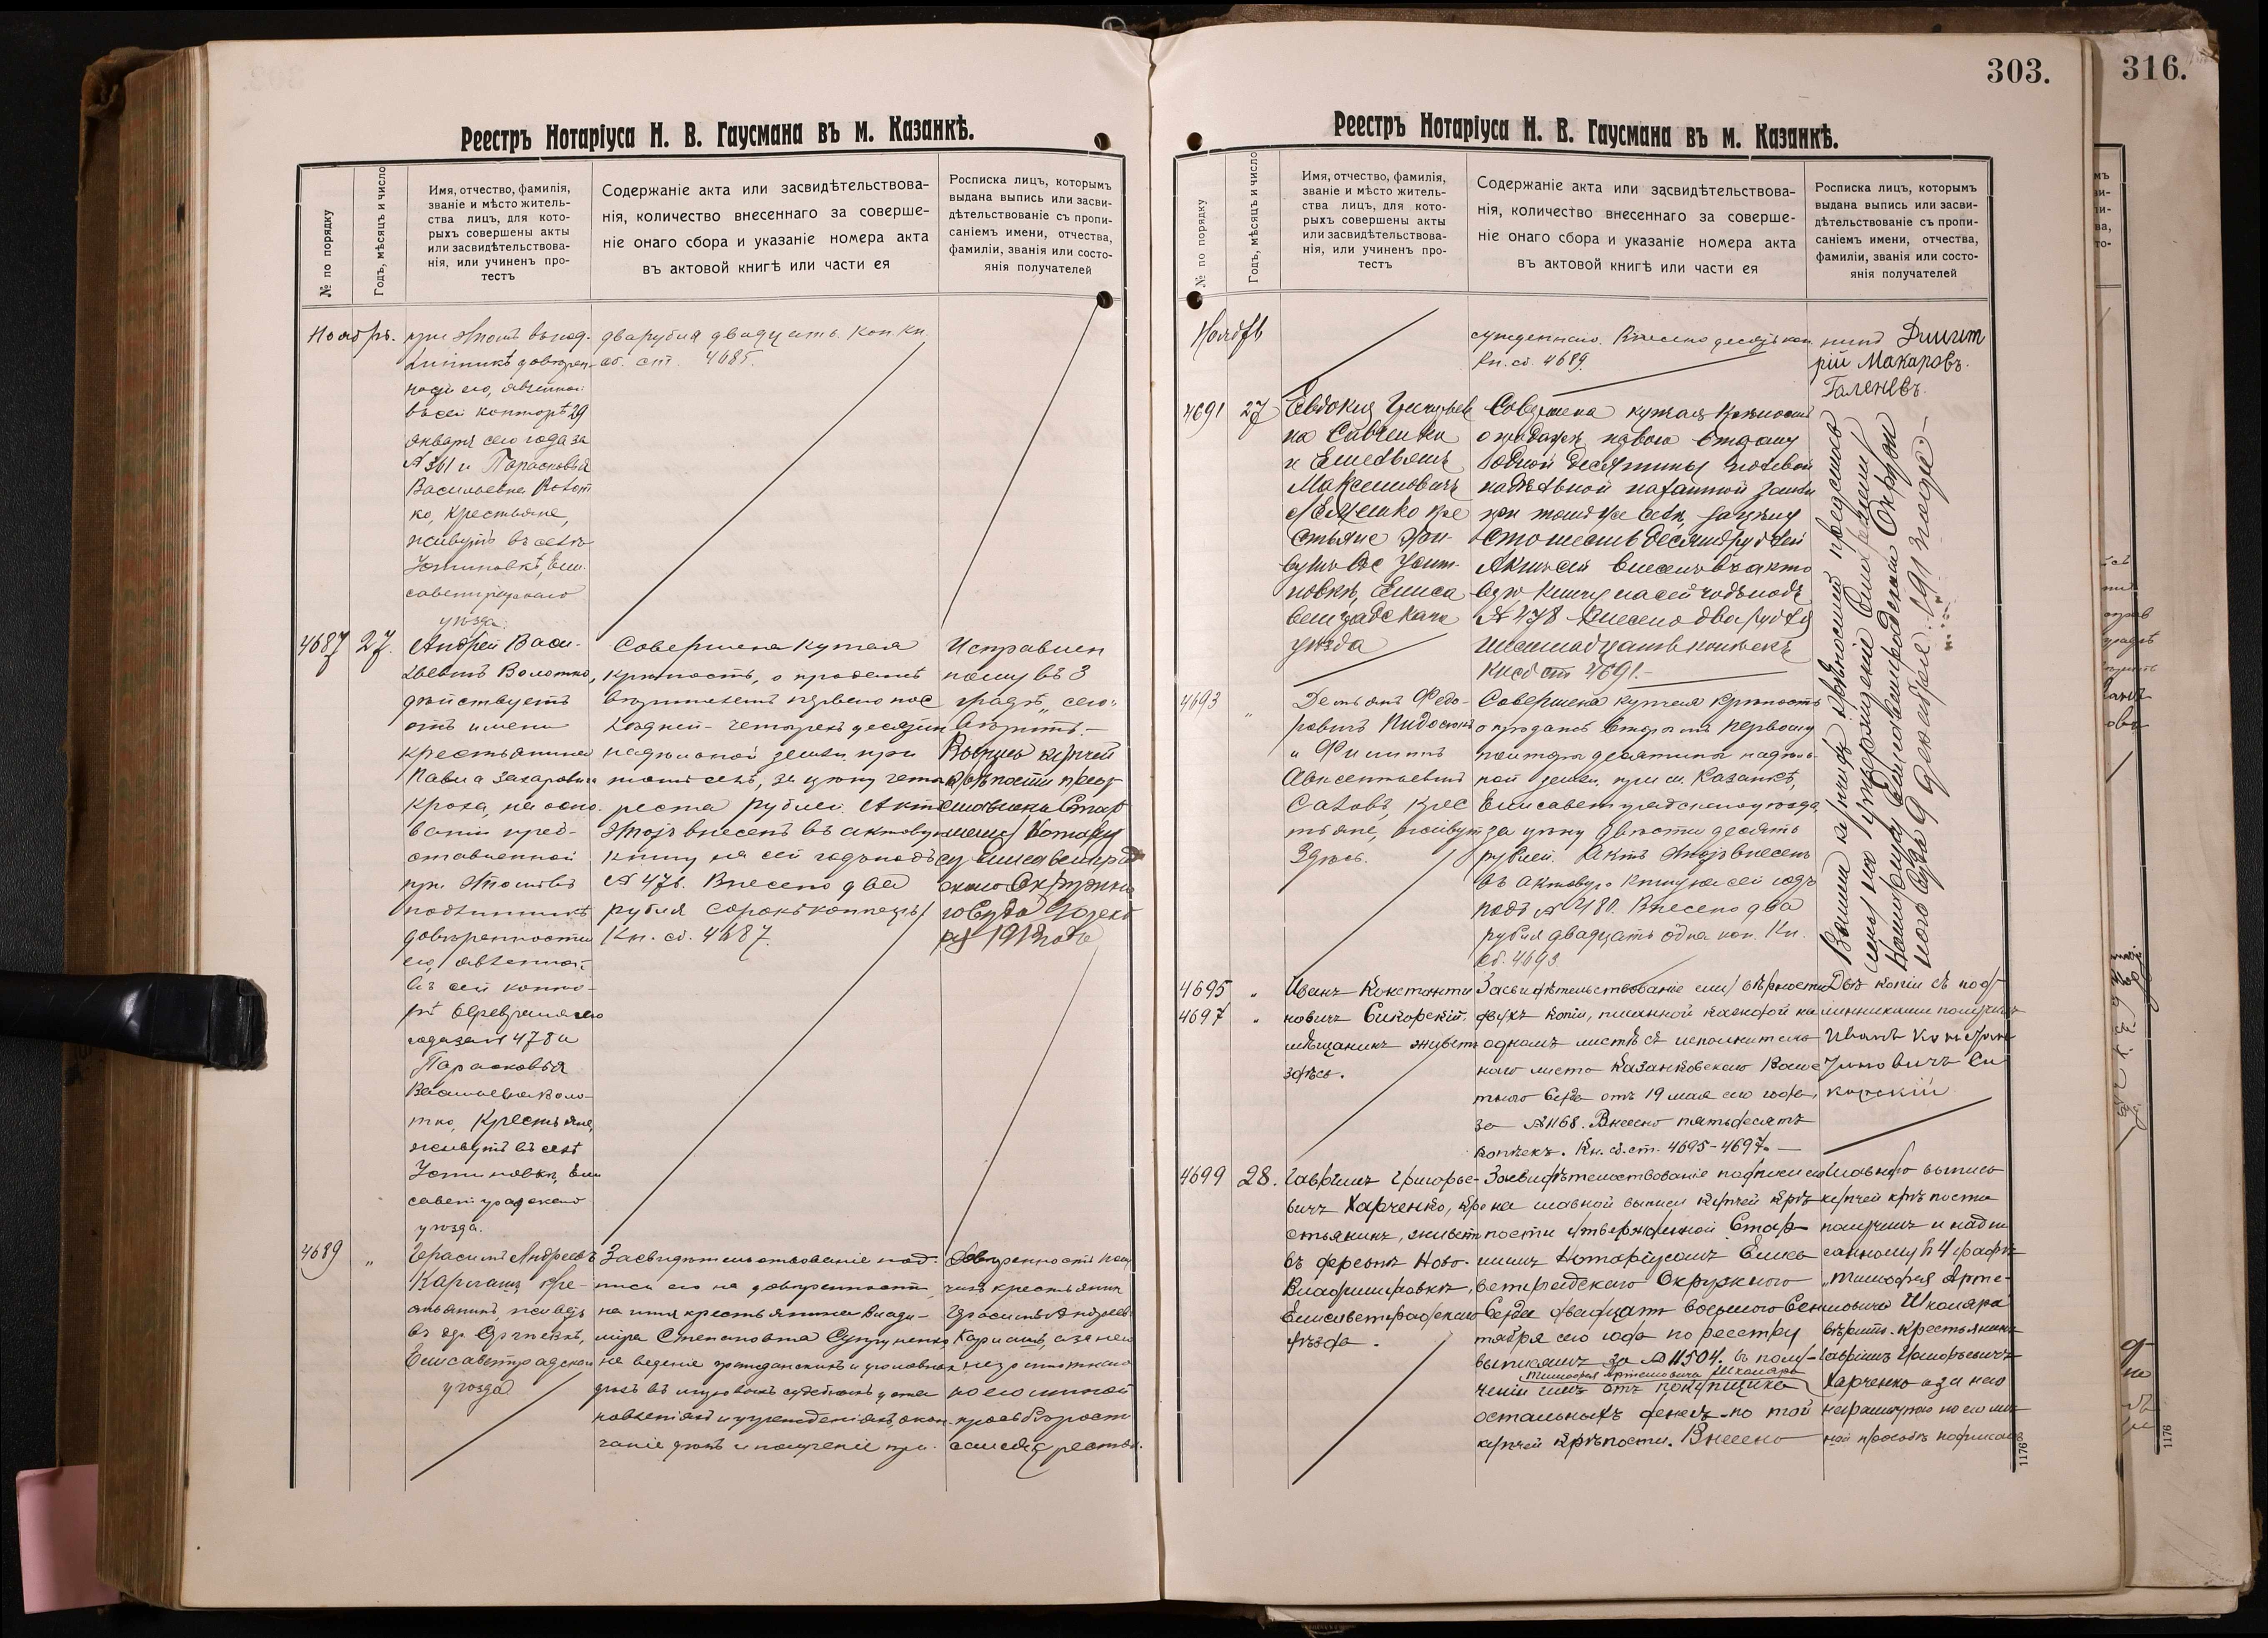 Реестръ Нотаріуса Н. В. Гаусмана въ м. Казанкѣ.
№ по порядку
Годъ, мѣсяцъ и число
Имя, отчество, фамилія,
званіе и мѣсто житель-
ства лицъ, для кото-
рыхъ совершены акты
или засвидѣтельствова-
нія, или учиненъ про-
тестъ
Содержаніе акта или засвидѣтельствова-
нія, количество внесеннаго за соверше-
ніе онаго сбора и указаніе номера акта
въ актовой книгѣ или части ея
Росписка лицъ, которымъ
выдана выпись или засви-
дѣтельствованіе съ пропи-
саніемъ имени, отчества,
фамиліи, званія или состо-
янія получателей
Ноябрь.
при этомъ въ под-
линникѣ довѣрен-
ности его, явленной
въ сей конторѣ 29
января сего года за
№ 361 и Парасковья
Васильевна Волот
ко, крестьяне,
живутъ въ селѣ
Устиновкѣ, Ели-
саветградскаго
уѣзда.
два рубля двадцать коп. Кн.
сб. ст. 4685.
4687
27.
Андрей Васи-
льевичъ Волотко,
дѣйствуетъ
отъ имени
крестьянина
Павла Захаровича
Кроха, на осно-
ваніи пред-
ставленной
при этомъ въ
подлинникѣ
довѣренности
его, явленной
въ сей конто-
рѣ февраля сего
года за № 478 и
Парасковья
Васильевна Воло-
тко, крестьяне,
живутъ въ селѣ
Устиновкѣ, Ели
саветградскаго
уѣзда.
Совершена купчая
крѣпость, о продажѣ
первымъ
четырехъ десятин
надѣльной земли при
томъ селѣ, за цѣну четы
реста рублей. Актъ
этотъ внесенъ въ актовую
книгу на сей годъ подъ
№ 476. Внесено два
рубля сорокъ копѣекъ
Кн. сб. 4687.
Исправлен
ному въ 3
графѣ „сего"
вѣрить.-
Выпись купчей
крѣпости предст
Стар
шему Нотаріу
су Елисаветград
скаго Окружна
го Суда 9 декаб
ря 1913 года
4689
„
Герасимъ Андреевъ
кре-
стьянинъ, живетъ
въ др. Сергѣевкѣ,
Елисаветградскаго
уѣзда
Засвидѣтельствованіе под-
писи его на довѣренности,
на имя крестьянина Влади-
міра Степановича Супруненко
на веденіе гражданскихъ и уголовныхъ
дѣлъ въ судебныхъ уста
новленіяхъ и учрежденіяхъ, окон-
чаніе дѣлъ и полученіе при-
Довѣренность полу
чилъ крестьянинъ
Герасимъ Андреев
а за него
неграмотнаго
по его личной
просьбѣ
303.
Реестръ Нотаріуса Н. В. Гаусмана въ м. Казанкѣ.
№ по порядку
Годъ, мѣсяцъ и число
Имя, отчество, фамилія,
званіе и мѣсто житель-
ства лицъ, для кото-
рыхъ совершены акты
или засвидѣтельствова-
нія, или учиненъ про-
тестъ
Содержаніе акта или засвидѣтельствова-
нія, количество внесеннаго за соверше-
ніе онаго сбора и указаніе номера акта
въ актовой книгѣ или части ея
Росписка лицъ, которымъ
выдана выпись или засви-
дѣтельствованіе съ пропи-
саніемъ имени, отчества,
фамиліи, званія или состо-
янія получателей
Ноябрь
сужденнаго. Внесено десять коп.
Кн. сб. 4689.
Дмит
рій Макаровъ.
Галеневъ.
4691
27
Евдокія
на Савченко
и Емельянъ
Максимовичъ
кре
стьяне жи-
вутъ въ с. Усти-
новкѣ, Елиса
ветградскаго
уѣзда
Совершена купчая крѣпость
о продажѣ первою второму
одной десятины полевой
надѣльной пахатной земли
при томъ же селѣ, за цѣну
сто шестьдесятъ рублей
Актъ сей внесенъ въ акто
вую книгу на сей годъ подъ
№ 478 Внесено два рубля
шестнадцать копѣекъ
Кн сб ст 4691.-
Выпись купчей крѣпости представ
лена на утвержденіе Старшему
Нотаріусу Елисаветградскаго Окруж
наго Суда 9 декабря 191 года -
4693
„
Демьянъ Федо-
ровичъ
и Филиппъ
Авксентьевичъ
Саловъ, крес
тьяне, живутъ
здѣсь.
Совершена купчая крѣпость
о продажѣ вторымъ первому
полторы десятины надѣль-
ной земли, при м. Казанкѣ,
Елисаветградскаго уѣзда,
за цѣну двѣсти десять
рублей. Актъ этотъ внесенъ
въ актовую книгу на сей годъ
подъ № 480. Внесено два
рубля двадцать одна коп. Кн.
сб. 4693
4695
„
4697
„
Иванъ Константи
новичъ Сикорскій.
мѣщанинъ живетъ
здѣсь.
Засвидѣтельствованіе вѣрности
двухъ копій, писанной каждой на
одномъ листѣ съ исполнитель
наго листа Казанковскаго Волос
тного Суда отъ 19 мая сего года,
за № 1168. Внесено пятьдесятъ
копѣекъ. Кн. сб. ст. 4695-4697.-
Двѣ копіи съ под-
линниками получилъ
Иванъ Констан
тиновичъ Си
корскій
4699
28.
Гавріилъ Григорье-
вичъ Харченко, кре
стьянинъ, живетъ
въ деревнѣ Ново-
Владиміровкѣ,
Елисаветградскаго
уѣзда.
Засвидѣтельствованіе подписи его
на главной выписи купчей крѣ
пости утвержденной Стар-
шимъ Нотаріусомъ Елиса
ветградскаго Окружного
Суда двадцать восьмого Сен
тября сего года по реестру
за № 11504. въ полу-
Тимофея Артемовича Школяра
ченіи имъ отъ покупщика
остальныхъ денегъ по той
купчей крѣпости. Внесено
Главную выпись
купчей крѣпости
получилъ и надпи
санному въ 4 графѣ
„Тимофея Арте-
мовича Школяра"
вѣрить. Крестьянинъ
Гавріилъ Григорьевичъ
Харченко а за него
неграмотнаго по его лич
ной просьбѣ подписалъ
1176
316.
1176